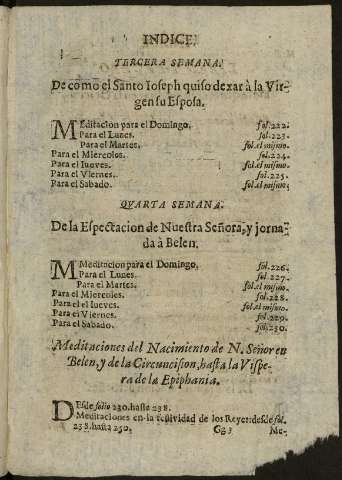 INDICE.
TERCERA SEMANA.
De cómo el Santo Ioseph quiso dexar à la Vir-
gen su Esposa.
Meditacion para el Domingo. fol.222.
Para el Lunes. fol.223.
Para el Martes. fol.el mismo.
Para el Miercoles. fol.224.
Para el Iueves. fol.el mismo.
Para el Viernes. fol.225.
Para el Sabado. fol.el mismo.
QVARTA SEMANA.
De la Espectacion de Nuestra Señora, y jorna-
da à Belen.
Meditacion para el Domingo. fol.226.
Para el Lunes. fol.227.
Para el Martes. fol.el mismo.
Para el Miercoles. fol.228.
Para el Iueves. fol.el mismo.
Para el Viernes. fol.229.
Para el Sabado. fol.230.
Meditaciones del Nacimiento de N. Señor en
Belen, y de la Circuncision, hasta la Vispe-
ra de la Epiphania.
Desde folio 230. hasta 238.
Meditaciones en la festividad de los Reyes: desde fol.
238. hasta 250. Gg 3 Me-